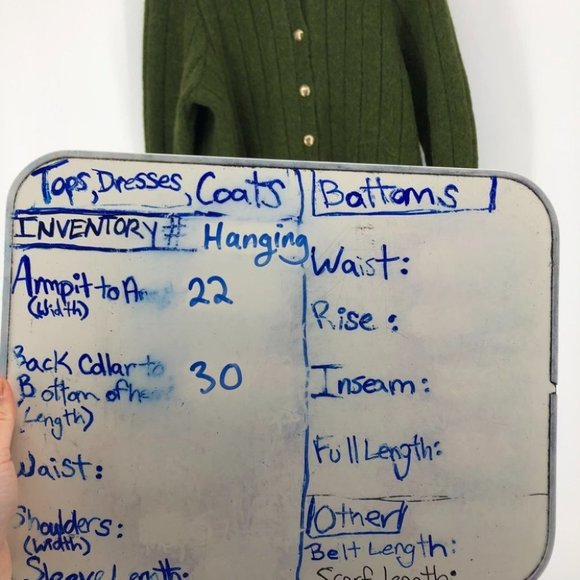 Tops, Dresses, Coats
INVENTORY # Hanging
Armpit to Ar
(Width)
22
Back Collar to
Bottom of he
(Length)
30
Waist:
Shoulders:
(Width)
Sleeve Length:
Bottoms
Waist:
Rise:
Inseam:
Full Length:
Other
Belt Length:
Scarf Length: